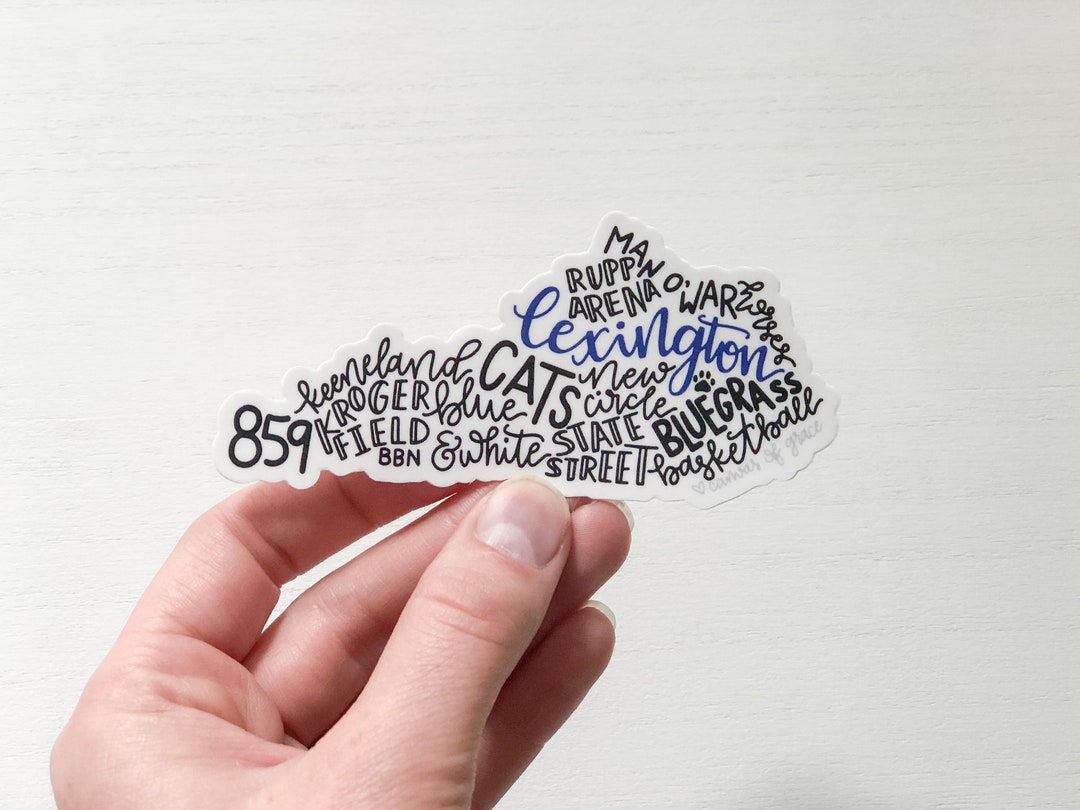 MAN O'WAR
RUPP
ARENA
horses
lexington
keeneland
CATS
new
circle
KROGER
FIELD
blue
& white
BBN
859
STATE
STREET
BLUEGRASS
basketball
canvas of grace